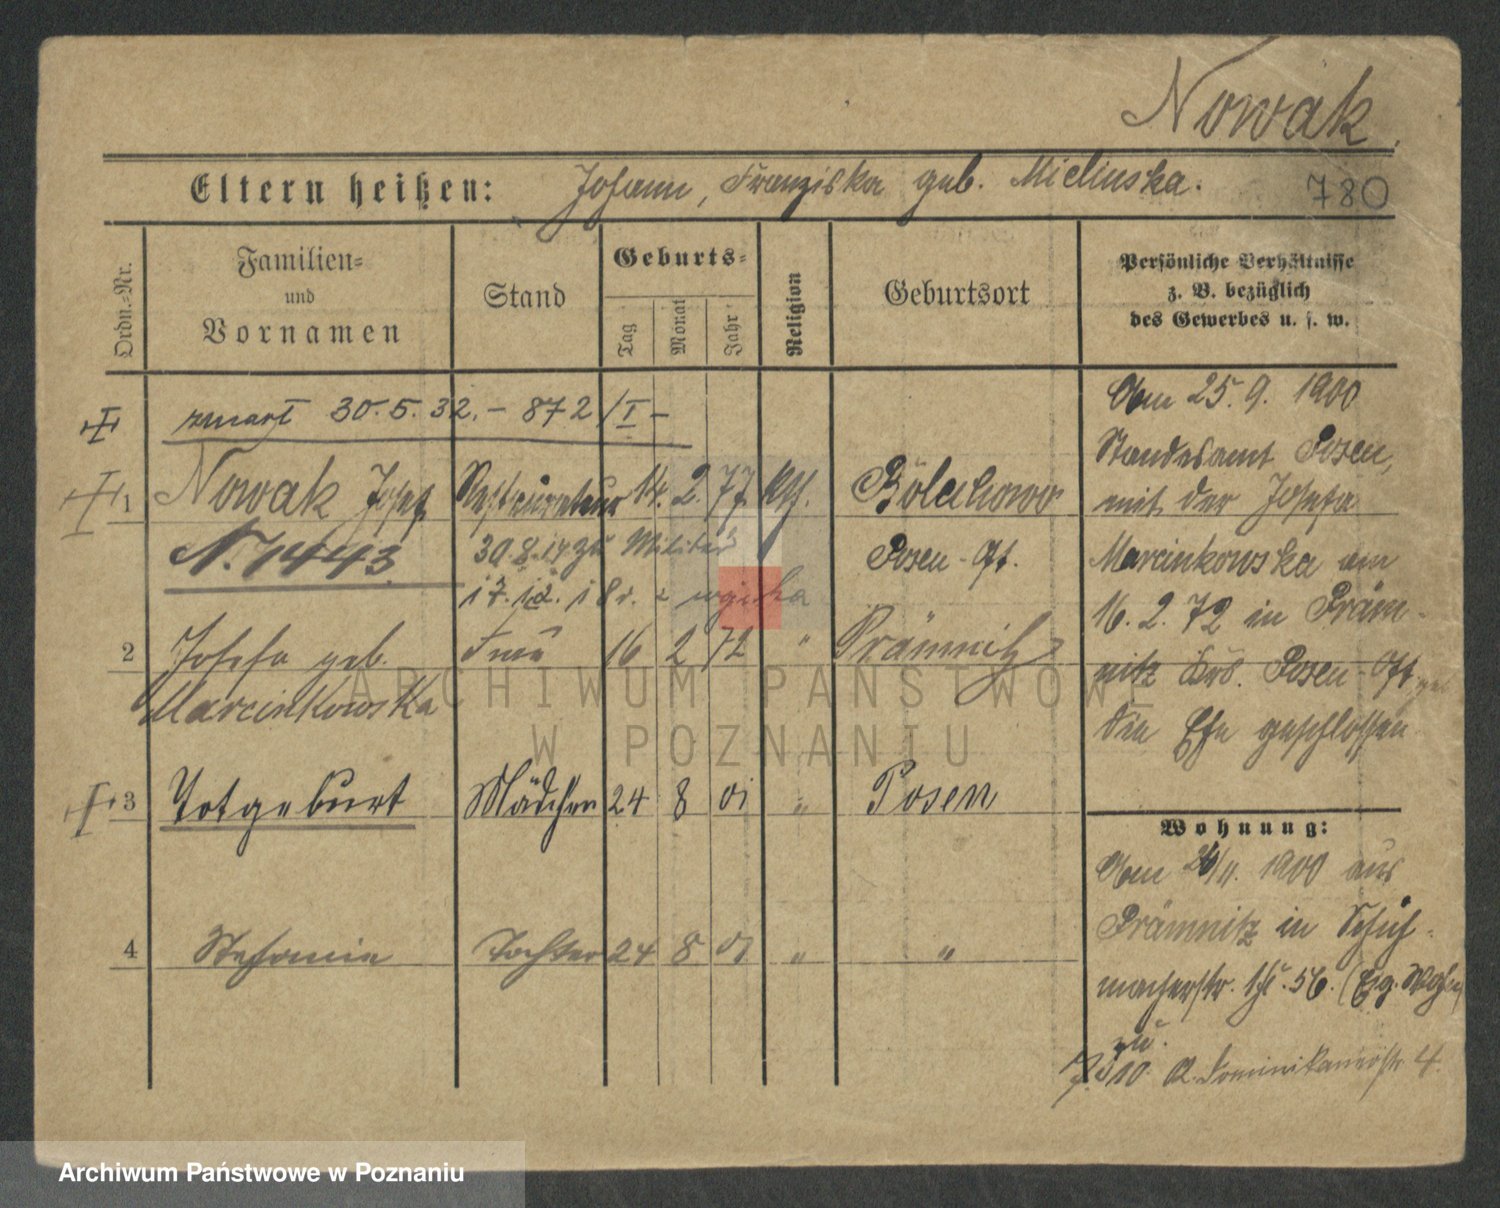 Nowak.
Eltern heißen: Johann, Franziska geb. Mielinska.
780
Ordn.=Nr.
Familien=
und
Vornamen
Stand
Geburts=
Tag
Monat
Jahr
Religion
Geburtsort
Persönliche Verhältnisse
z. B. bezüglich
des Gewerbes u. s. w.
zmarł 30.5.32. - 872/I -
1 Nowak Josef Restaurateur 14. 2. 77. kth. Bolechowo
N. 1443 30.8.14 zu Militär Posen-Ost.
17.12.18 r. z wojska
2 Josefa geb. Frau 16 2 72 " Prämnitz
Marcinkowska
3 Totgeburt Mädchen 24 8 01 " Posen
4 Stefanie Tochter 24 8 01 " "
Am 25.9.1900
Standesamt Posen,
mit der Josefa
Marcinkowska am
16.2.72 in Präm-
nitz Krs. Posen-Ost geb
die Ehe geschlossen
Wohnung:
Am 1900 aus
Prämnitz in Schuh-
macherstr. 56. (Eig.
zu.
10. Dominikanerstr. 4.
ARCHIWUM PAŃSTWOWE
W POZNANIU
Archiwum Państwowe w Poznaniu